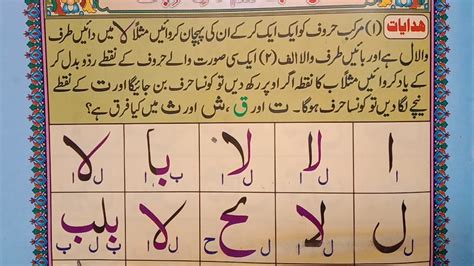 ھدایات (۱) مرکب حروف کو ایک ایک کر کے ان کی پہچان کروائیں مثلاً لا میں دائیں طرف
والا ل ہے اور بائیں طرف والا الف (۲) ایک سی صورت والے حروف کے نقطے ردو بدل کر
کے یاد کروائیں مثلاً ب کا نقطہ اگر اوپر رکھ دیں تو کونسا حرف بن جائیگا اور ت کے نقطے
نیچے لگا دیں تو کونسا حرف ہوگا۔ ت اور ق ، ش اور ث میں کیا فرق ہے؟
ا لا لا با لا
ا ل ا ل ا ب ا ل ا
ل لا لح لا بلب
ل ل ا ل ح ل ا ب ل ب